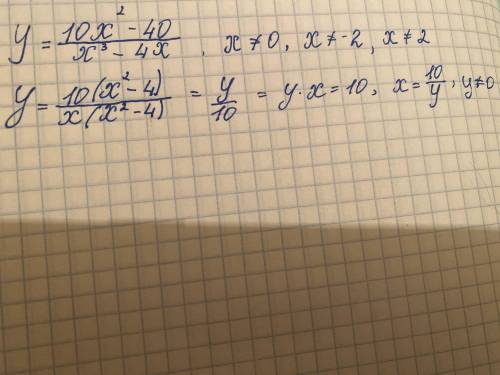 y = \frac{10x^2 - 40}{x^3 - 4x}, x ≠ 0, x ≠ -2, x ≠ 2
y = \frac{10(x^2 - 4)}{x(x^2 - 4)} = \frac{y}{10} = y · x = 10, x = \frac{10}{y}, y ≠ 0